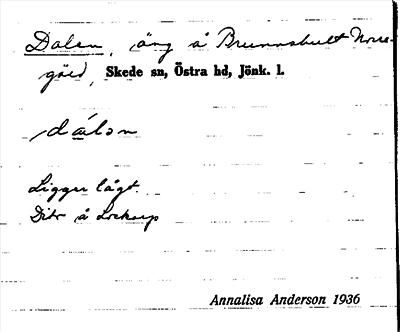 Dalen, äng å Brunnshult Norre-
gård, Skede sn, Östra hd, Jönk. l.
dálən
Ligger lågt.
Dito å Lockarp
Annalisa Anderson 1936